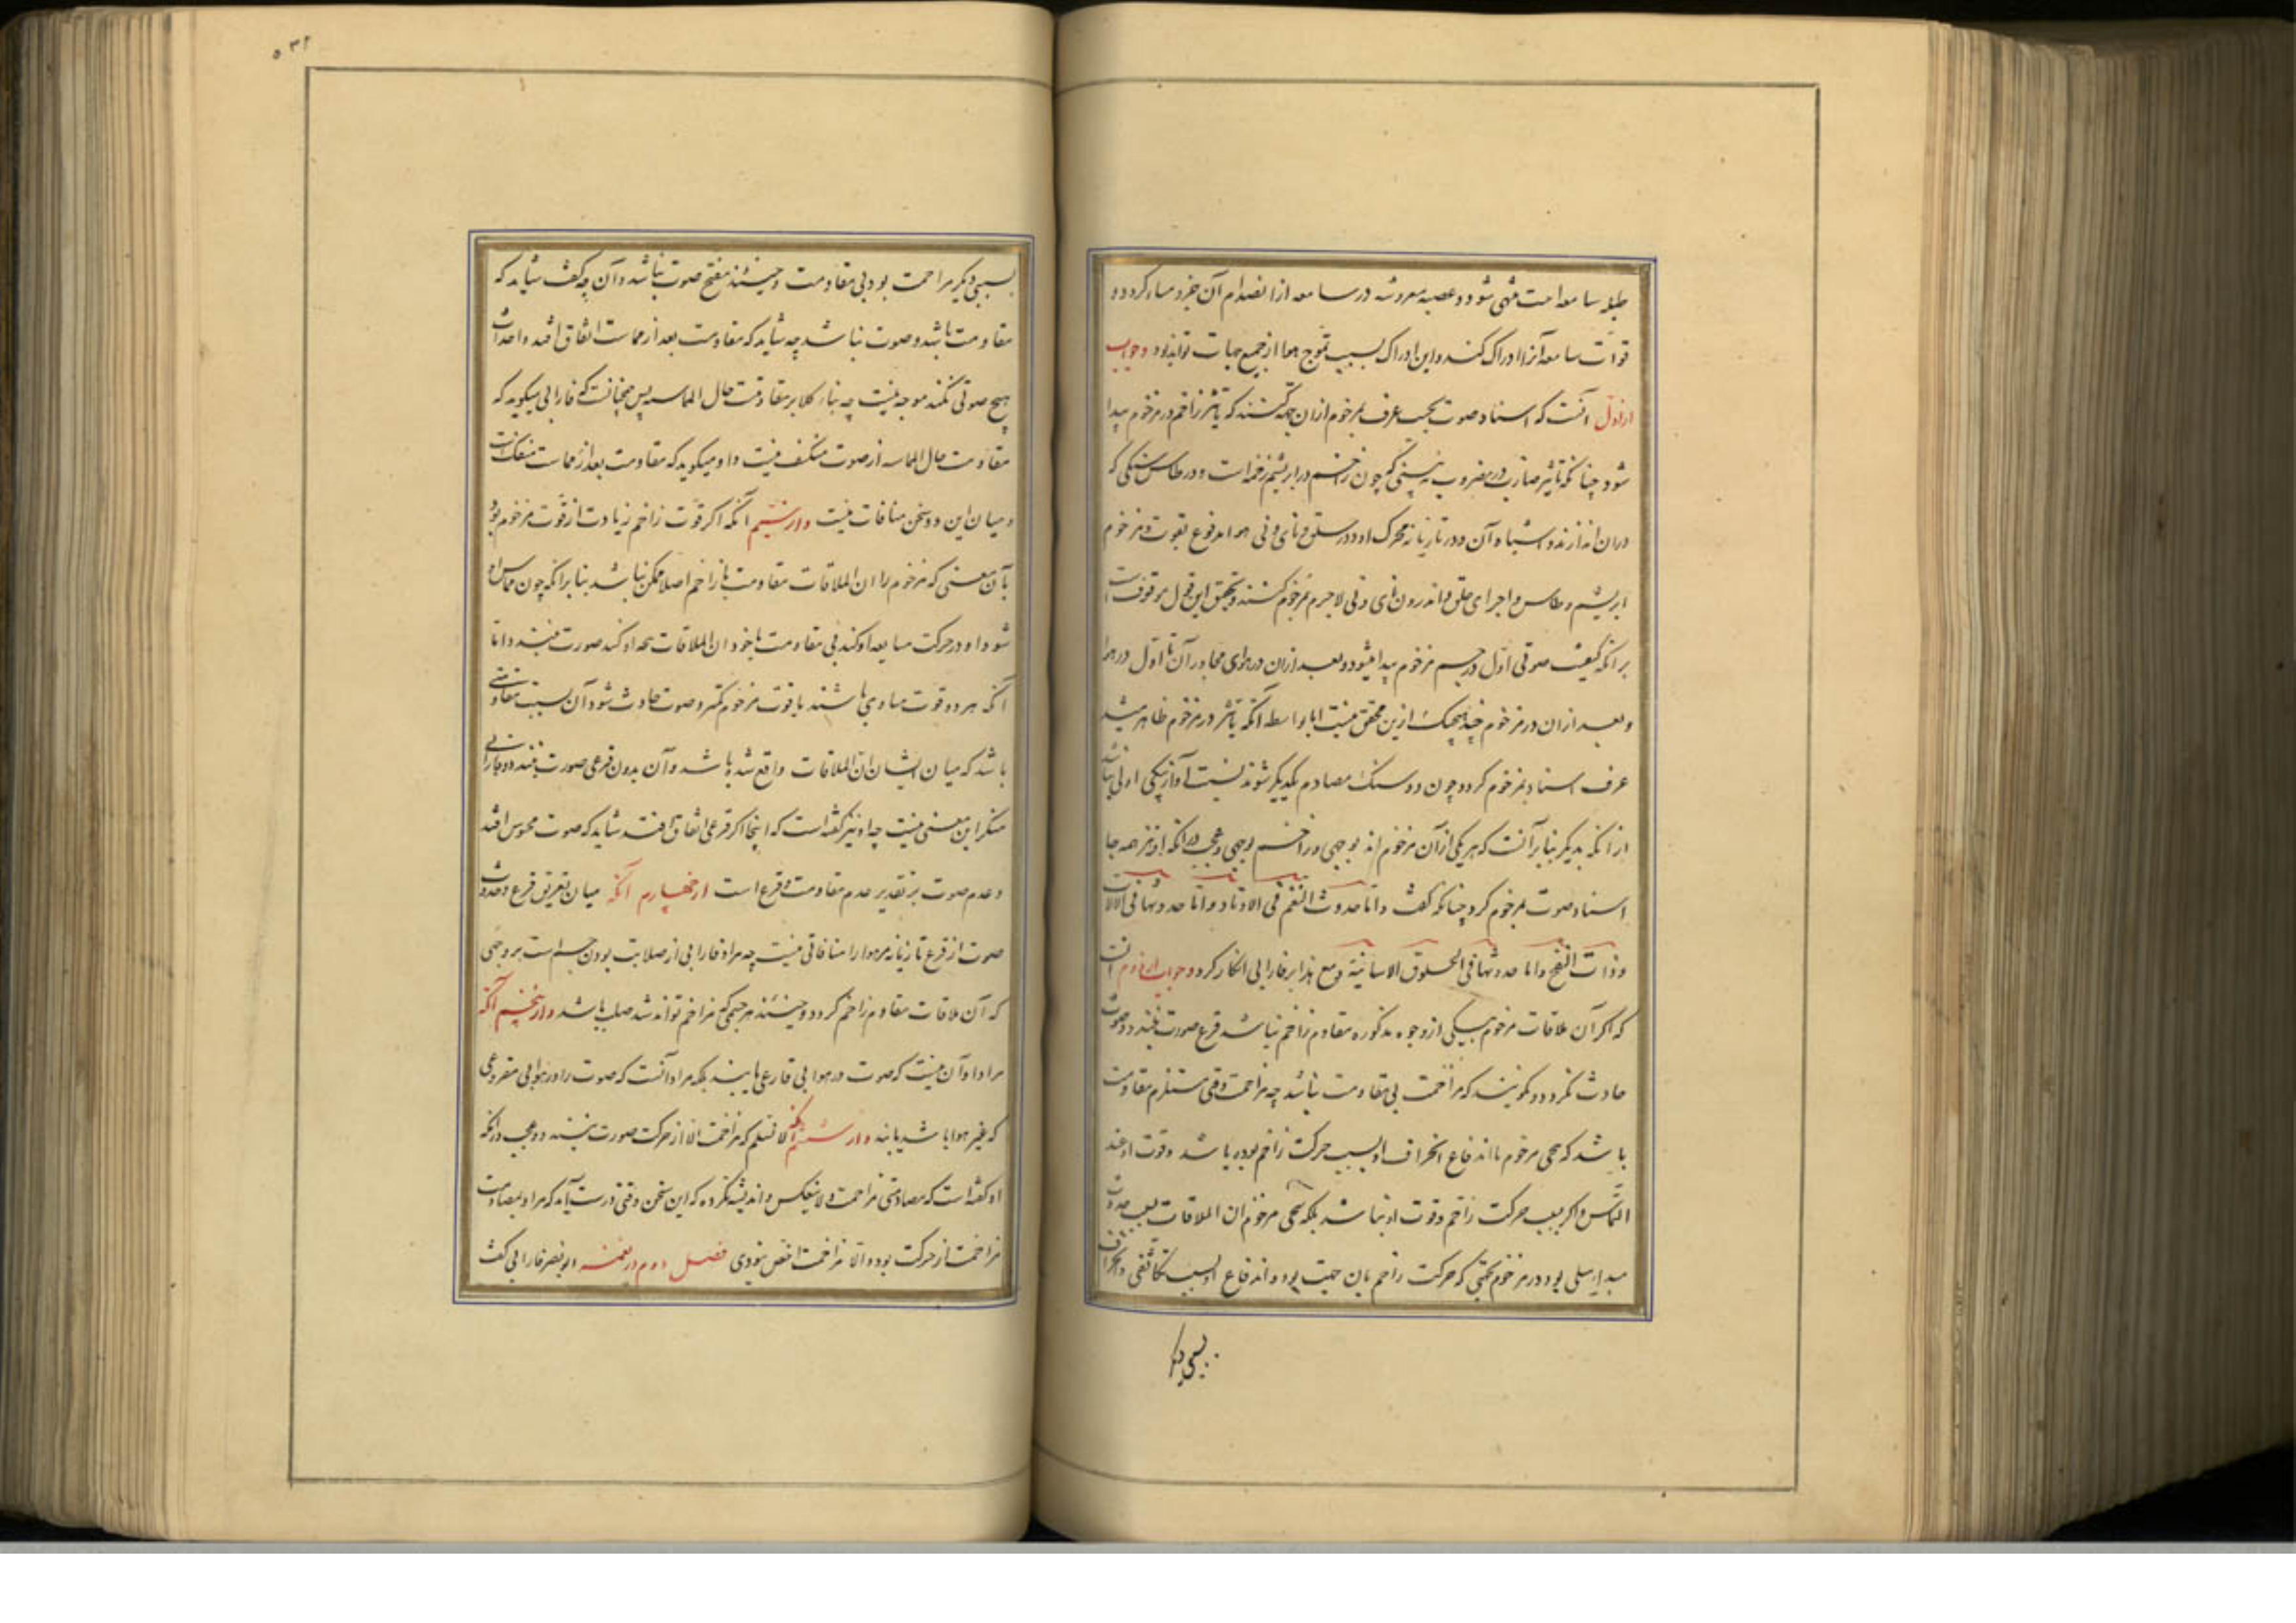 سامعه است منتهی شود و عصبه مفروشه در سامعه از انصدام آن خبردار کردد و
قوت سامعه آنرا ادراک کند و این ادراک بسبب تموج هوا از جمیع جهات تواند بود و جواب
از اول آنست که اسناد صوت بحسب عرف بمزحوم ازان جهة کنند که تأثیر زاحم در مزحوم پیدا
شود چنانکه تأثیر ضارب در مضروب نه بینی که چون زاحم در ابریشم زخمه است و در طاس سنکی که
دران اندازند و اشباه آن و در تازیانه محرک او و در حلق و نای و نی هوا مدفوع بقوت و مزحوم
ابریشم و طاس و اجزای حلق و اندرون نای و نی لاجرم بمزحوم کنند و تحقق این قول موقوفست
برانکه کیفیت صوتی اول در جسم مزحوم پیدا میشود و بعد ازان در هوای مجاور آن یا اول در هوا
و بعد ازان در مزحوم چه هیچیک ازین محقق نیست اما بواسطه آنکه تأثیر در مزحوم ظاهر میشد
عرف اسناد بمزحوم کردد و چون دو سنک مصادم یکدیکر شوند نسبت آواز بیکی اولی نباشد
ازانکه بدیکر بنابر آنست که هر یکی ازان مزحوم اند بوجهی و زاحم بوجهی و عجب درانکه او نیز همه جا
اسناد صوت بمزحوم کرد چنانکه کفت و اما حدوث النغم فی الاوتار و اما حدوثها فی الالات
ذوات النفخ و اما حدوثها فی الحلوق الانسانیة و مع هذا بر فارابی انکار کرد و جواب از دوم آنست
که اکر آن ملاقات مزحوم بیکی از وجوه مذکوره مقاوم زاحم نباشد قرع صورت نبندد و صوت
حادث نکردد و نکویند که مزاحمت بی مقاومت نباشد چه مزاحمت وقتی مستلزم مقاومت
باشد که تنحی مزحوم یا اندفاع و انحراف او بسبب حرکت زاحم بوده باشد و قوت او عند
التماس و اکر بسبب حرکت زاحم و قوت او نباشد بلکه تنحی مزحوم ان الملاقات بسبب حدوث
مبداء میلی بود در مزحوم بجهتی که حرکت زاحم بان جهت بود و اندفاع او بسبب تکاثفی و انحراف
بسببی دیکر
۵۳۲
بسببی دیکر مزاحمت بود بی مقاومت و حینئذ منتج صوت نباشد و آن چه کفت شاید که
مقاومت باشد و صوت نباشد چه شاید که مقاومت بعد از مماست اتفاق افتد و احداث
هیچ صوتی نکند موجه نیست چه بناء کلام بر مقاومت حال المماسه پس همچنانست که فارابی میکوید که
مقاومت حال المماسه از صوت منکف نیست و او میکوید که مقاومت بعد از مماست منفک است
و میان این دو سخن منافات نیست و از سیم آنکه اکر قوت زاحم زیادت از قوت مزحوم بود
بآن معنی که مزحوم را ان الملاقات مقاومت با زاحم اصلا ممکن نباشد بنابر انکه چون مماس او
شود او در حرکت متابعه او کند بی مقاومت ما خود ان الملاقات صورت نبندد و اما
آنکه هر دو قوت مساوی باشند یا قوت مزحوم کمتر و صوت حادث شود آن بسبب مقاومتی
باشد که میان ایشان ان الملاقات واقع شده باشد و آن بدون قرعی صورت نبندد و فارابی
منکر این معنی نیست چه او نیز کفته است که اینجا اکر قرعی اتفاق افتد شاید که صوت محسوس افتد
و عدم صوت بر تقدیر عدم مقاومت و قرع است از چهارم آنکه میان تعریق قرع و حدوث
صوت از قرع تازیانه مر هوا را منافاتی نیست چه مراد فارابی از صلابت بودن جسم است بر وجهی
که آن ملاقات مقاوم زاحم کردد و حینئذ هر جسمی که مزاحم تواند شد صلب باشد و از پنجم آنکه
مراد او آن نیست که صوت در هوا بی قارعی یابند بلکه مراد آنست که صوت را در هوا بی مقروعی
که غیر هوا باشد یابند و از ششم آنکه لا نسلم که مزاحمت الا از حرکت صورت نبندد و عجب درانکه
او کفته است که مصادمتی مزاحمت و لا ینعکس و اندیشه نکرده که این سخن وقتی درست آید که مراد بمصادمت
مزاحمت از حرکت بود و الا مزاحمت اخص نبودی فصل دوم در نغمه ابو نصر فارابی کفت